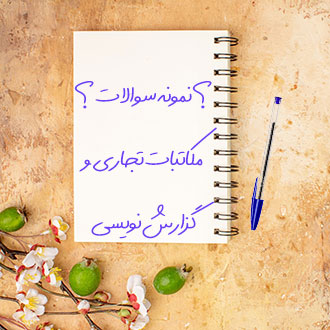 ؟ نمونه سوالات ؟
مکاتبات تجاری و
گزارش نویسی